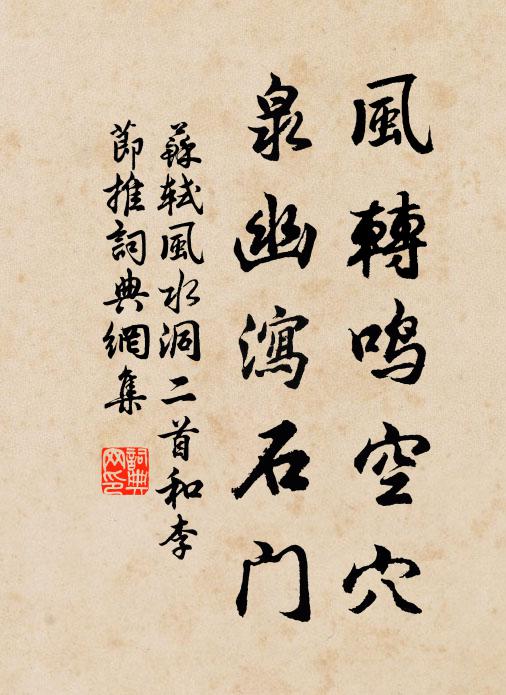 風轉鳴空穴
泉幽瀉石門
蘇軾風水洞二首和李
節推詞典網集
詞典网印